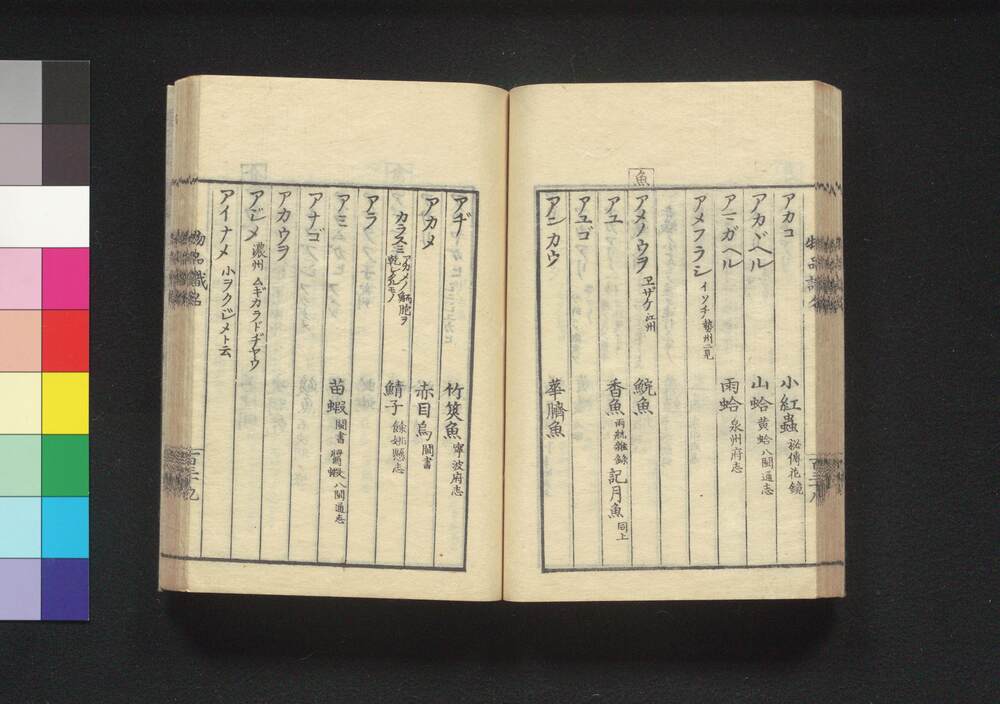 アカコ 小紅蟲 祕傳花鏡
アカヾヘル 山蛤 黄蛤 八閩通志
アミガヘル 雨蛤 泉州府志
アメフラシ イソチ 勢州二見
魚
アメノウヲ ヱザケ 江州 鯇魚
アユ 香魚 雨航雜録 記月魚 同上
アユゴ
アンカウ 華臍魚
アヂ 竹筴魚 寧波府志
アカメ 赤目烏 閩書
カラスミ アカメノ鮞胞ヲ乾シタルモノ 鯖子 餘姚縣志
アラ
アミ 苗蝦 閩書 醬蝦 八閩通志
アナゴ
アカウヲ
アジメ 濃州 ムギカラドヂヤウ
アイナメ 小ヲクジメト云
物品識名
百三十九